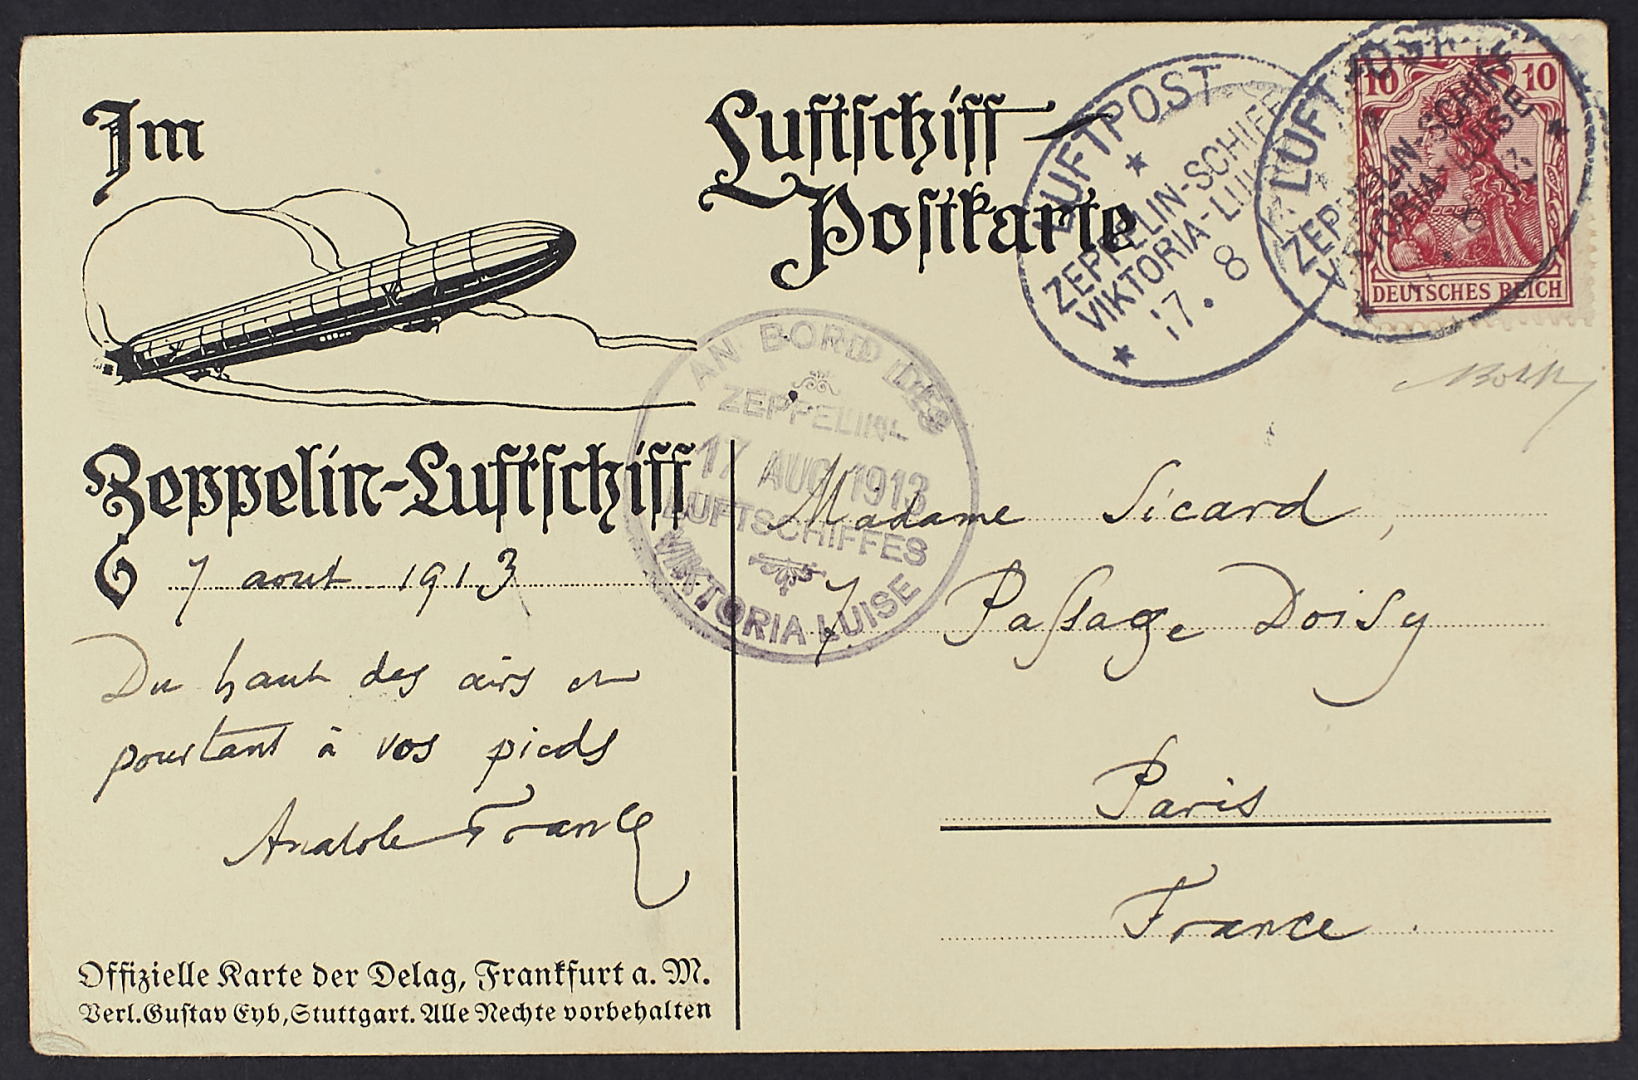 Im
Zeppelin-Luftschiff
7 aout 1913
Du haut des airs et
pourtant à vos pieds
Anatole France
Offizielle Karte der Delag, Frankfurt a. M.
Verl. Gustav Eyb, Stuttgart. Alle Rechte vorbehalten
Luftschiff-
Postkarte
AN BORD DES
ZEPPELIN-
17 AUG 1913
LUFTSCHIFFES
VIKTORIA LUISE
LUFTPOST
ZEPPELIN-SCHIFF
VIKTORIA-LUISE
17. 8
LUFTPOST
ZEPPELIN-SCHIFF
VIKTORIA-LUISE
10 10
DEUTSCHES REICH
Madame Sicard,
7. Passage Doisy
Paris
France.